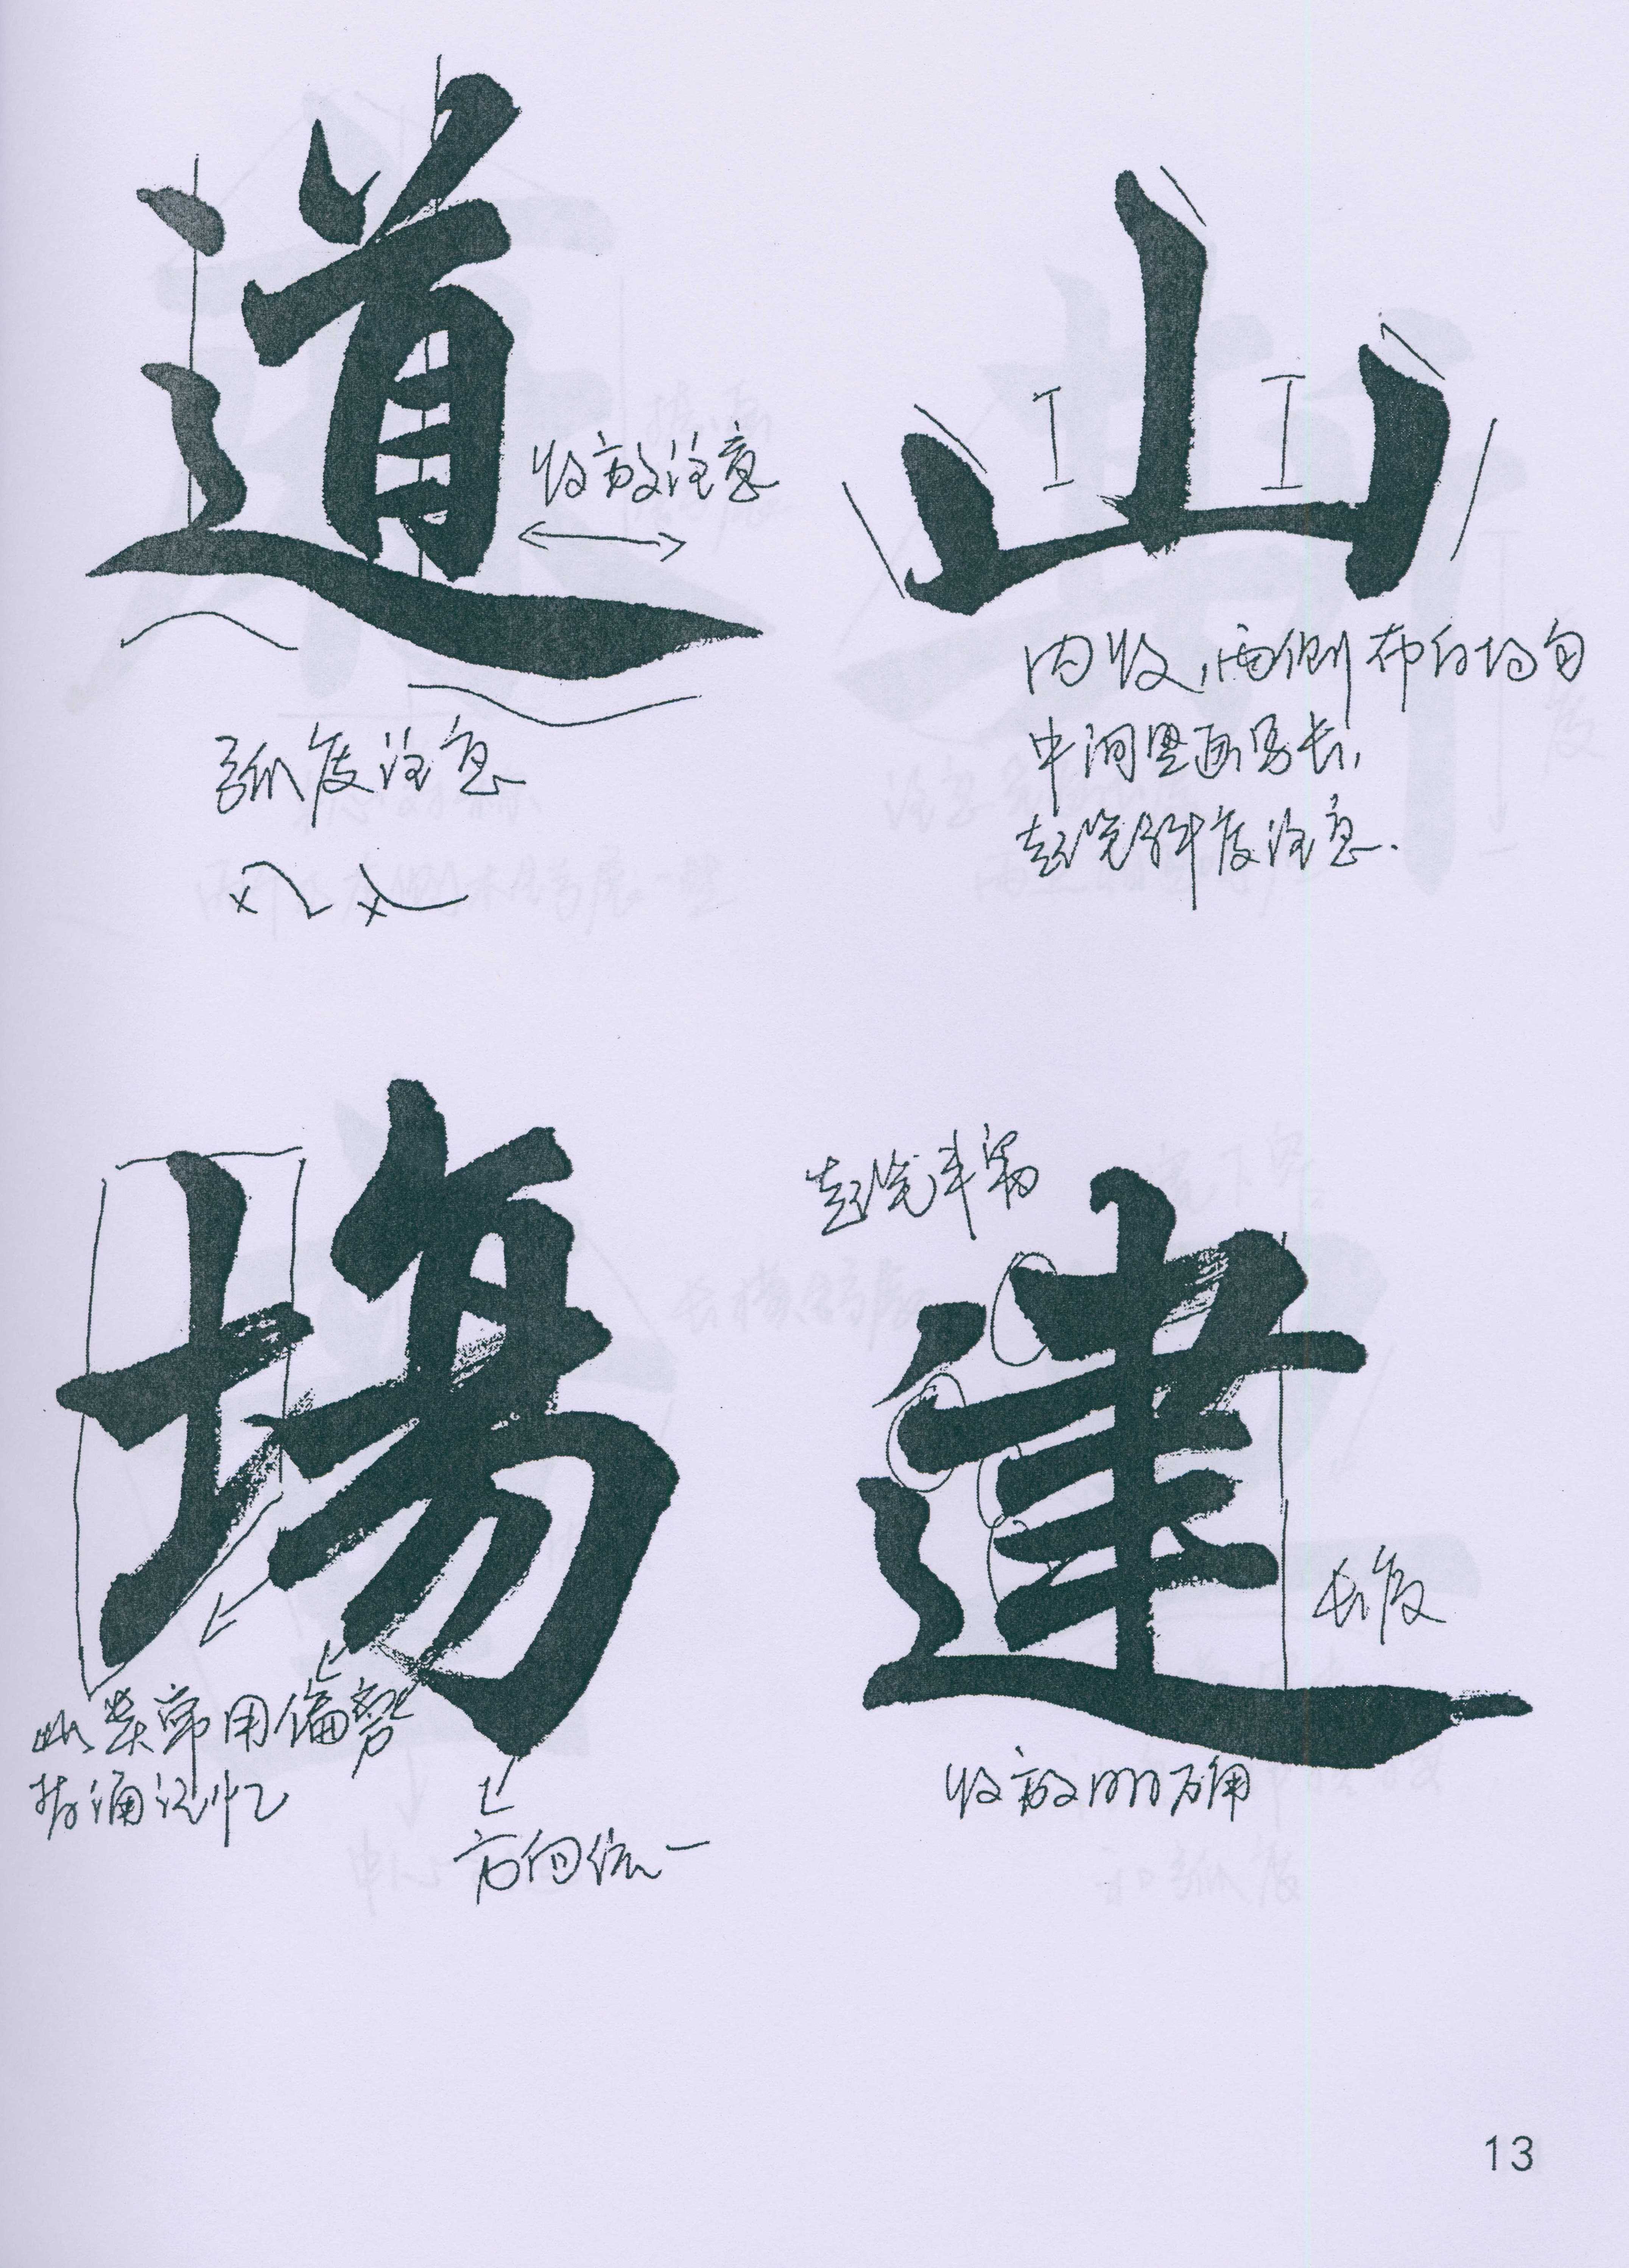 道
收放注意
弧度注意
山
内收,两侧布白均匀
中间竖画写长,
起笔斜度注意.
場
此类常用偏旁
持诵记忆
方向统一
起笔丰富
建
长度
收放明确
13